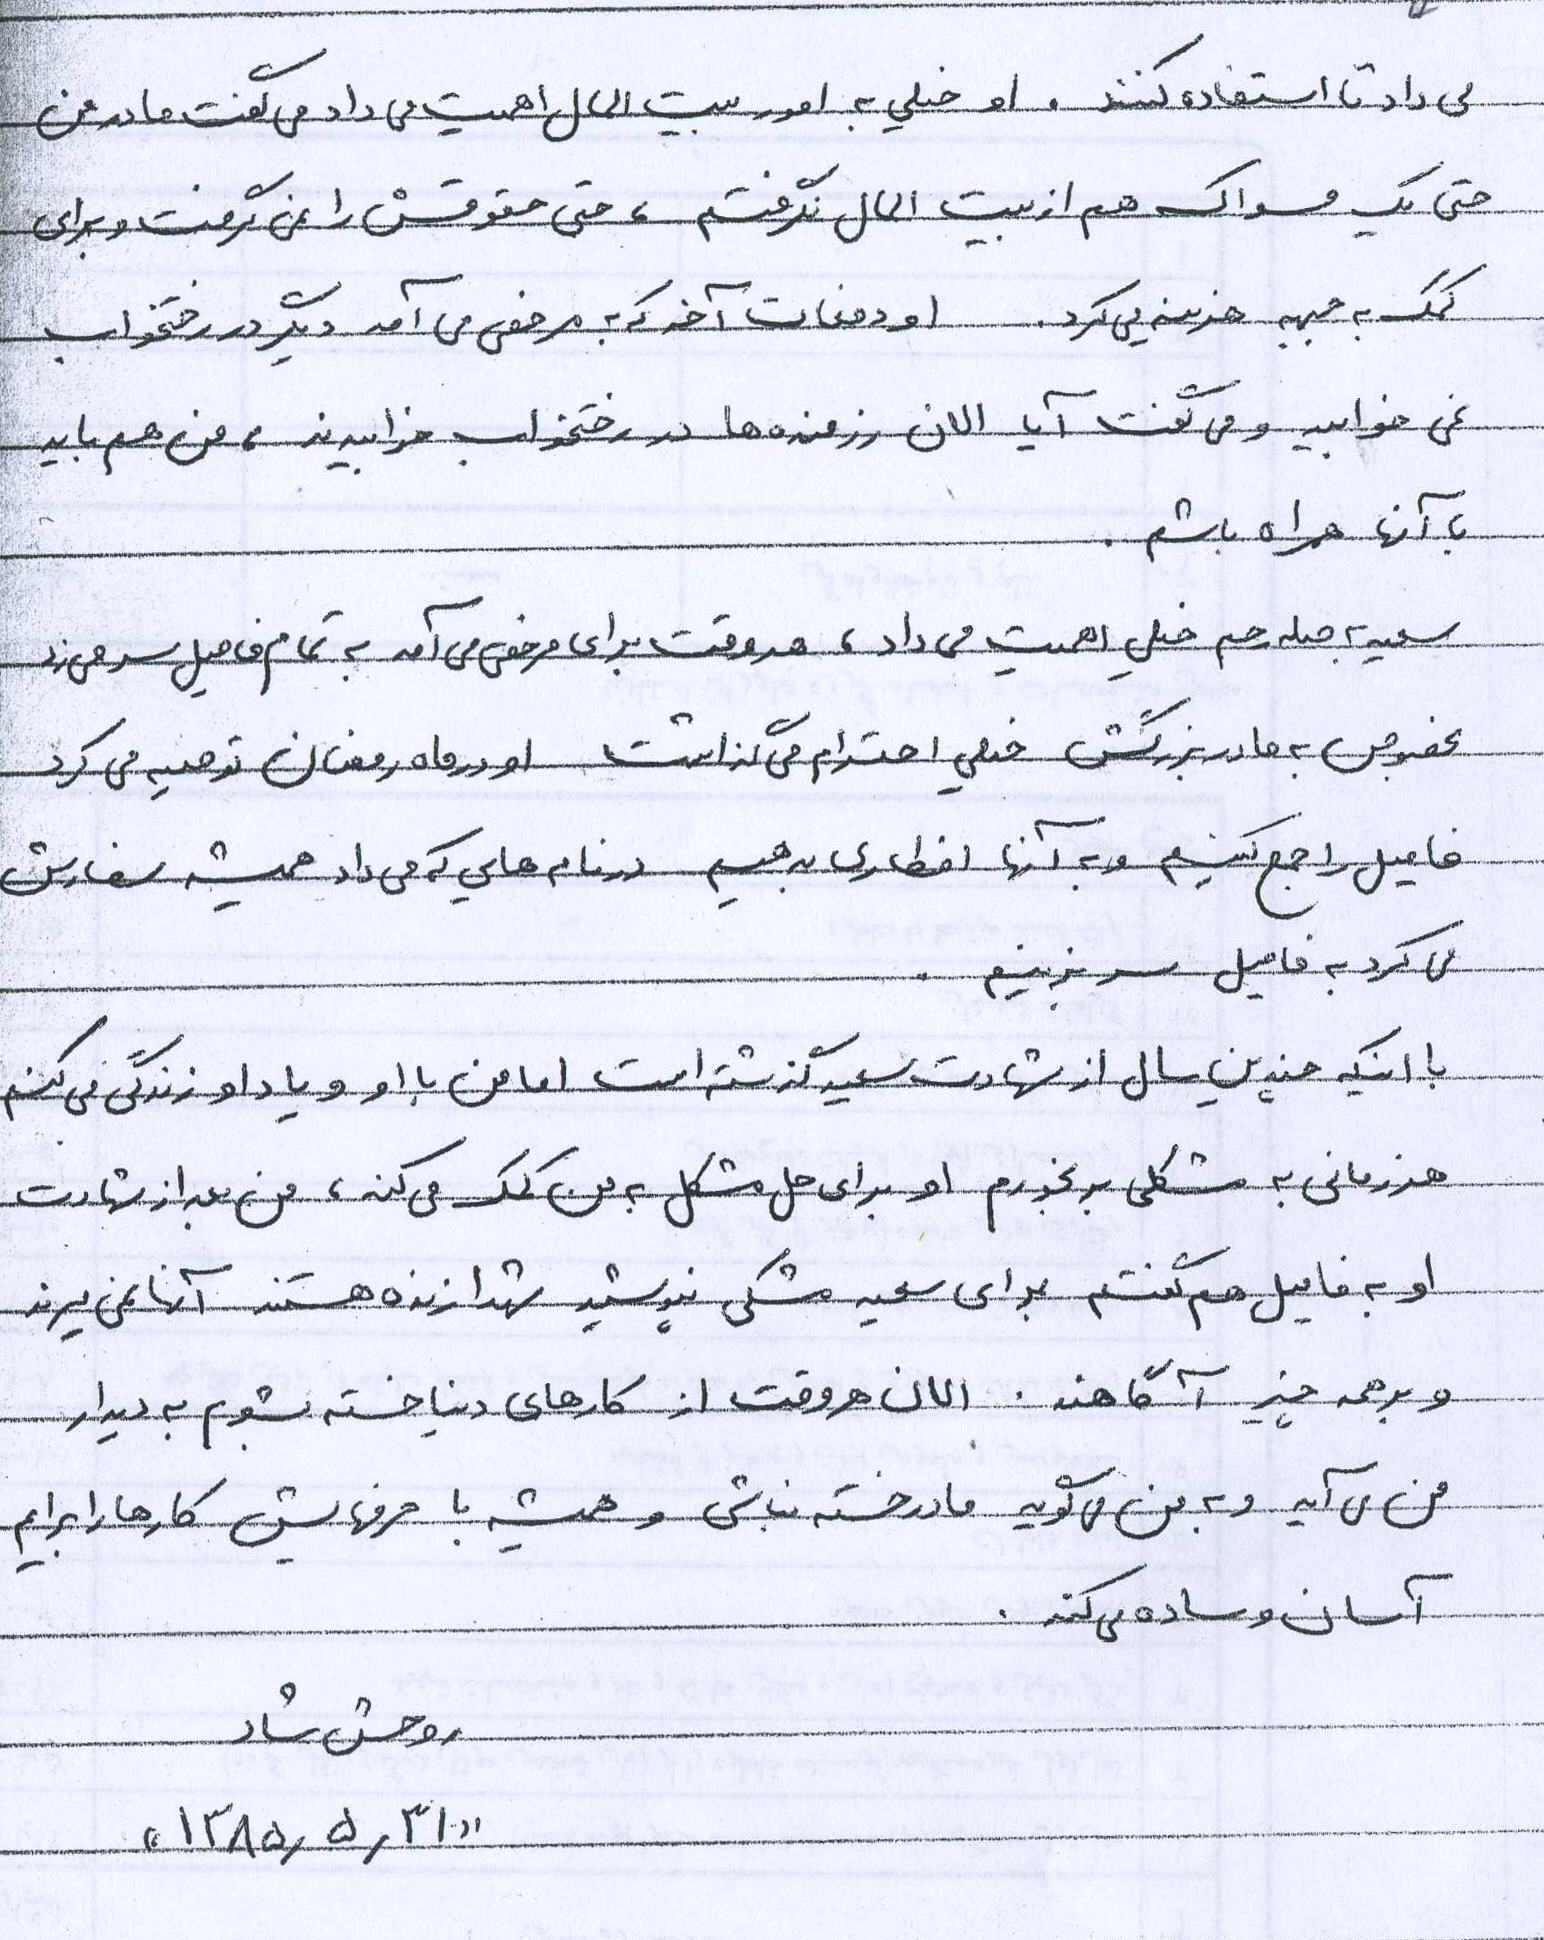 می داد تا استفاده کنند . او خیلی به امور بیت المال اهمیت می داد می گفت مادر من
حتی یک مسواک هم از بیت المال نگرفتم ، حتی حقوقش را نمی گرفت و برای
کمک به جبهه هزینه می کرد . او دفعات آخر که به مرخصی می آمد دیگر در رختخواب
نمی خوابید و می گفت آیا الان رزمنده ها در رختخواب خوابیدند ، من هم باید
با آنها همراه باشم .
سعید به صله رحم خیلی اهمیت می داد ، هر وقت برای مرخصی می آمد به تمام فامیل سر می زد
بخصوص به مادر بزرگش خیلی احترام می گذاشت او در ماه رمضان توصیه می کرد
فامیل را جمع کنیم و به آنها افطاری بدهیم در نامه هایی که می داد همیشه سفارش
می کرد به فامیل سر بزنیم .
با اینکه چندین سال از شهادت سعید گذشته است اما من با او و یاد او زندگی می کنم
هر زمانی به مشکلی بر بخورم او برای حل مشکل به من کمک می کند ، من بعد از شهادت
او به فامیل هم گفتم برای سعید مشکی نپوشید شهدا زنده هستند آنها نمی میرند
و بر همه چیز آگاهند . الان هر وقت از کارهای دنیا خسته بشوم به دیدار
من می آید و به من می گوید مادر خسته نباشی و همیشه با حرفهایش کارها را برایم
آسان و ساده می کند .
روحش شاد
«۱۳۸۵٫۵٫۳۱»